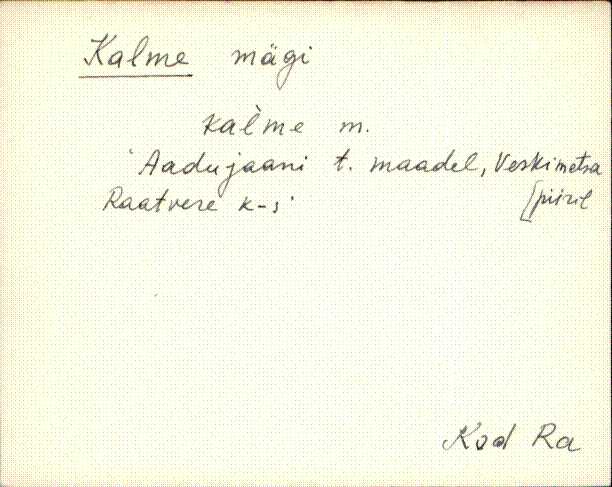 Kalme mägi
kal̀me m.
'Aadujaani t. maadel, Veskimetsa
[piiril
Raatvere k-s
Kod Ra